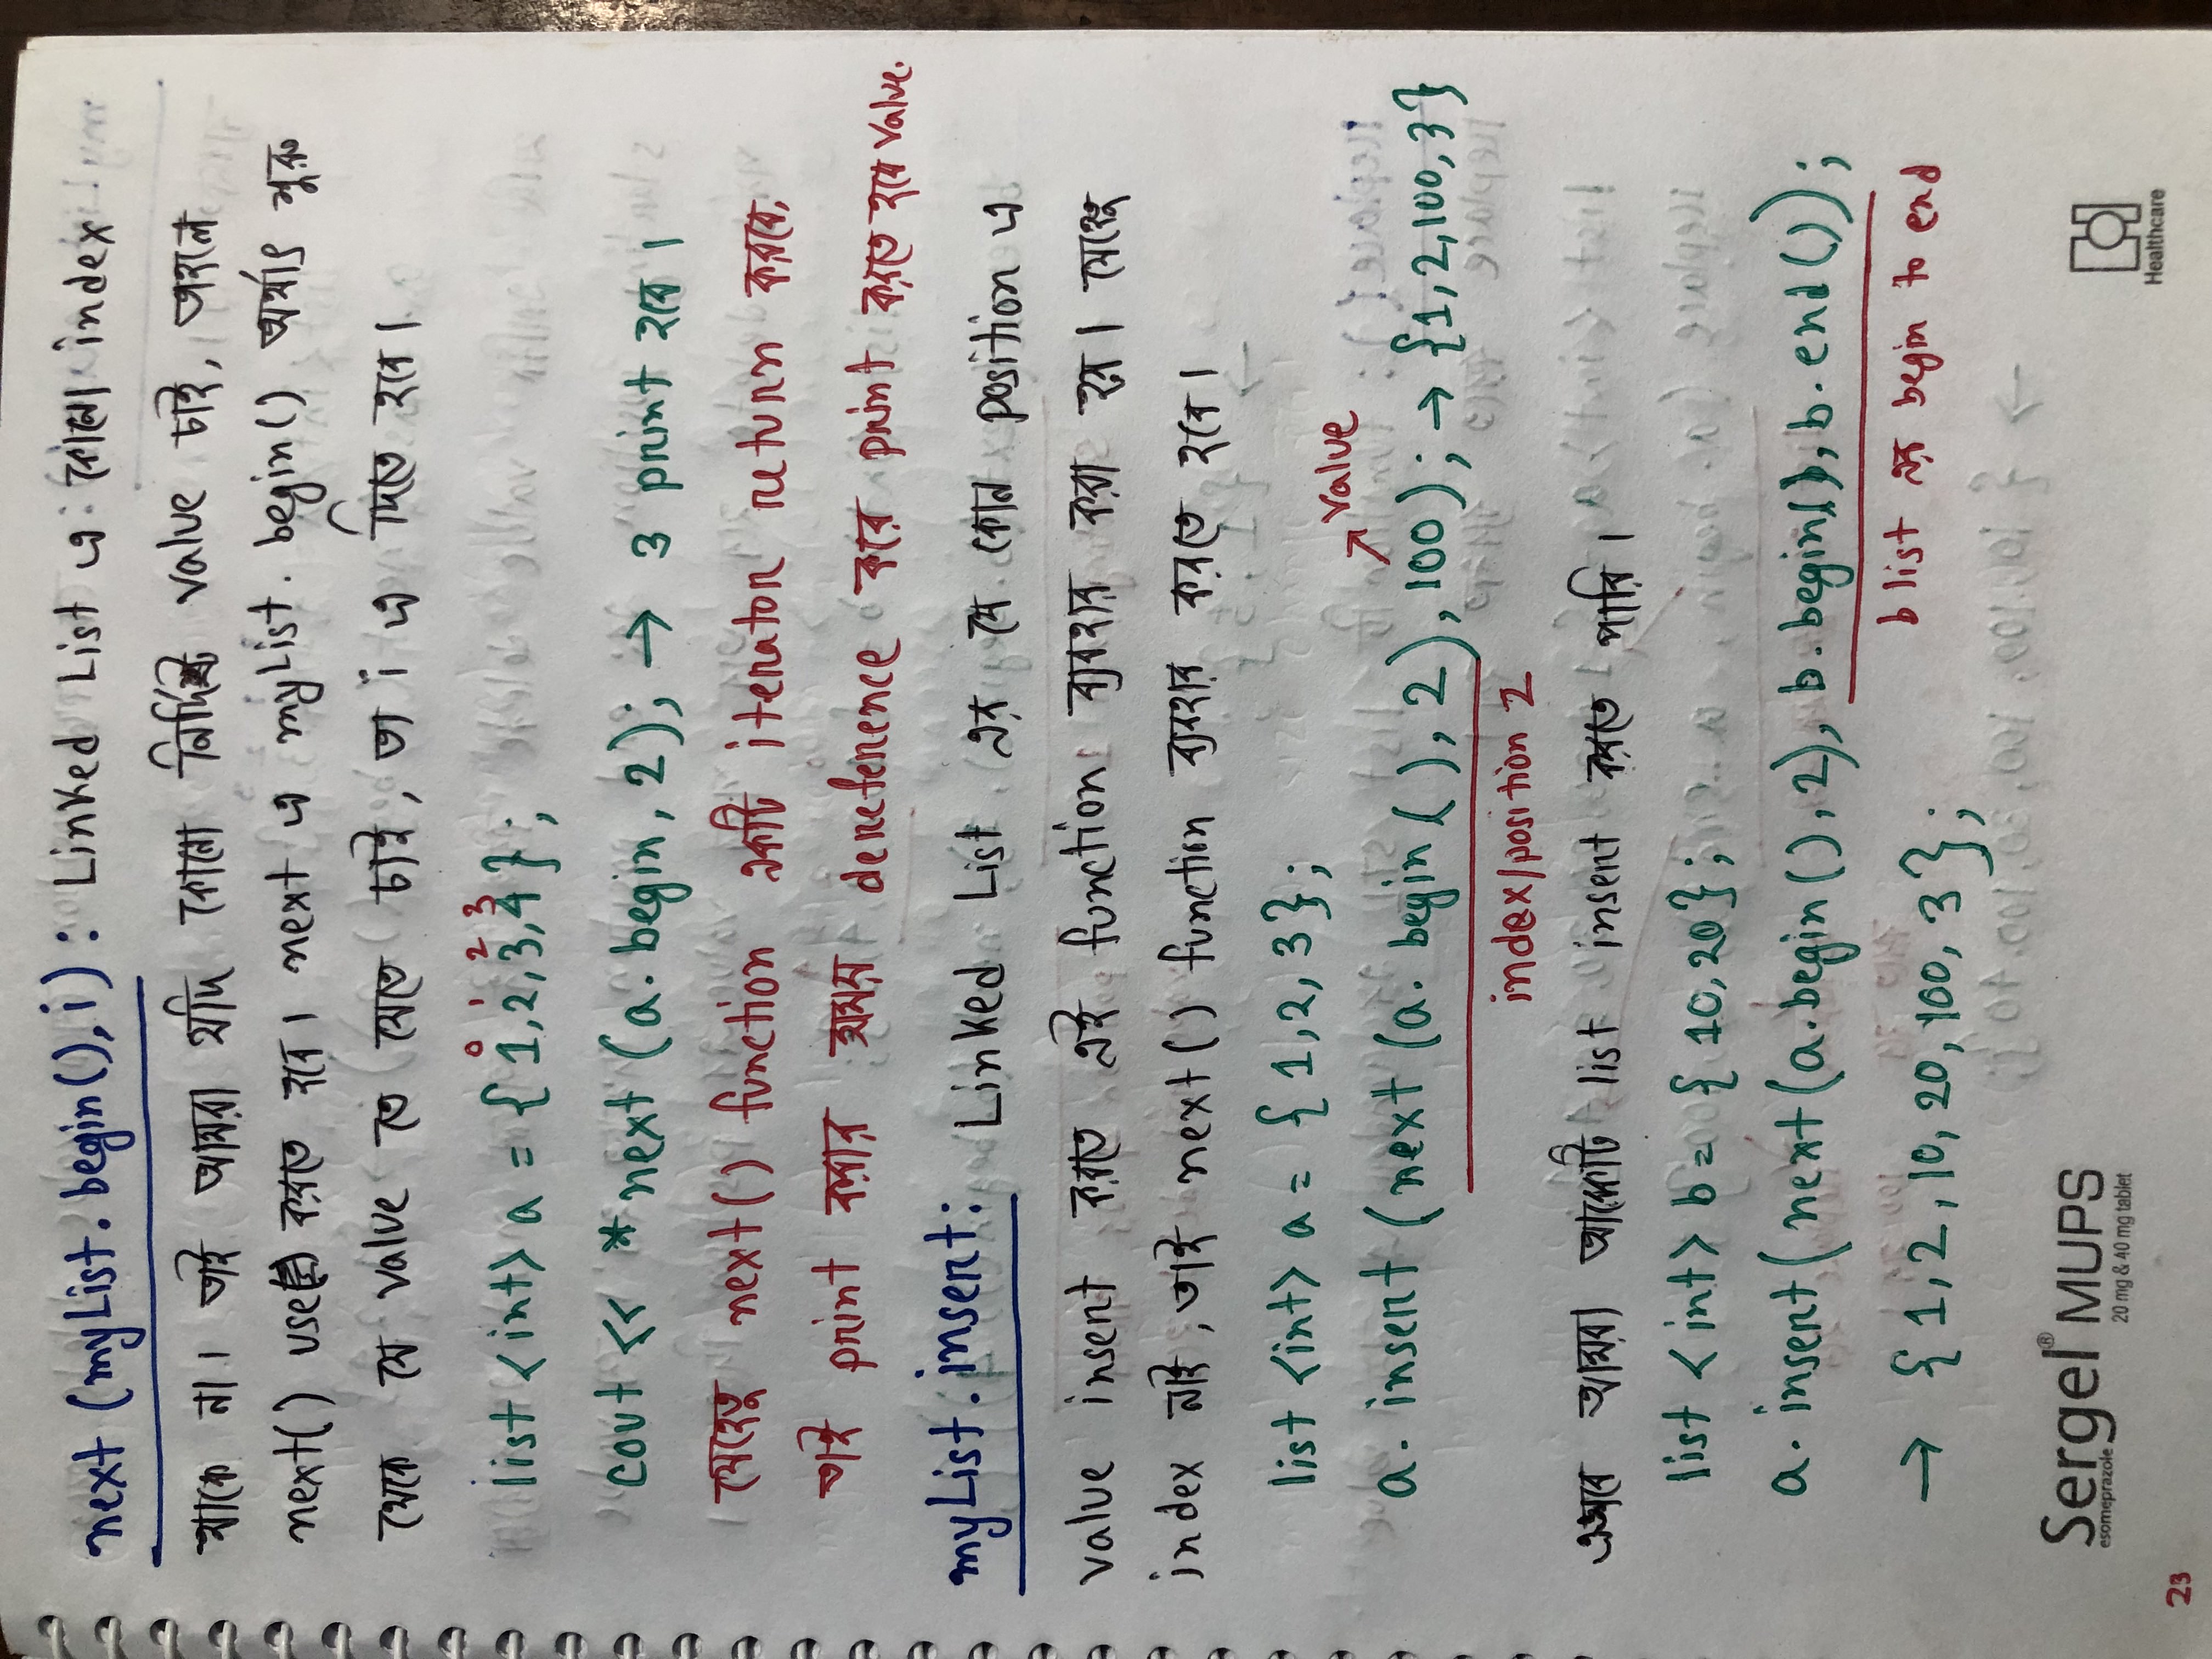 next (myList.begin(), i) : Linked List এ কোনো index
থাকে না। তাই আমরা যদি কোনো নির্দিষ্ট value চাই, তাহলে
next() use করতে হবে। next এ myList.begin() অর্থাৎ শুরু
থেকে যে value তে যেতে চাই, তা i এ দিতে হবে।
0 1 2 3
list <int> a = {1,2,3,4};
cout << *next (a.begin, 2); → 3 print হবে।
যেহেতু next() function একটি iterator return করবে,
তাই print করার সময় dereference করে print করতে হবে value.
myList.insert: Linked List এর যে কোন position এ
value insert করতে এই function ব্যবহার করা হয়। যেহেতু
index নাই, তাই next() function ব্যবহার করতে হবে।
list <int> a = {1,2,3};
value
a. insert (next (a. begin (), 2), 100); → {1,2,100,3}
index/position 2
এভাবে আমরা আরেকটি list insert করতে পারি।
list <int> b = {10,20};
a. insert(next(a.begin(), 2), b.begin(), b.end());
b list এর begin to end
→ {1,2,10,20,100,3};
Sergel® MUPS
esomeprazole
20 mg & 40 mg tablet
Healthcare
23